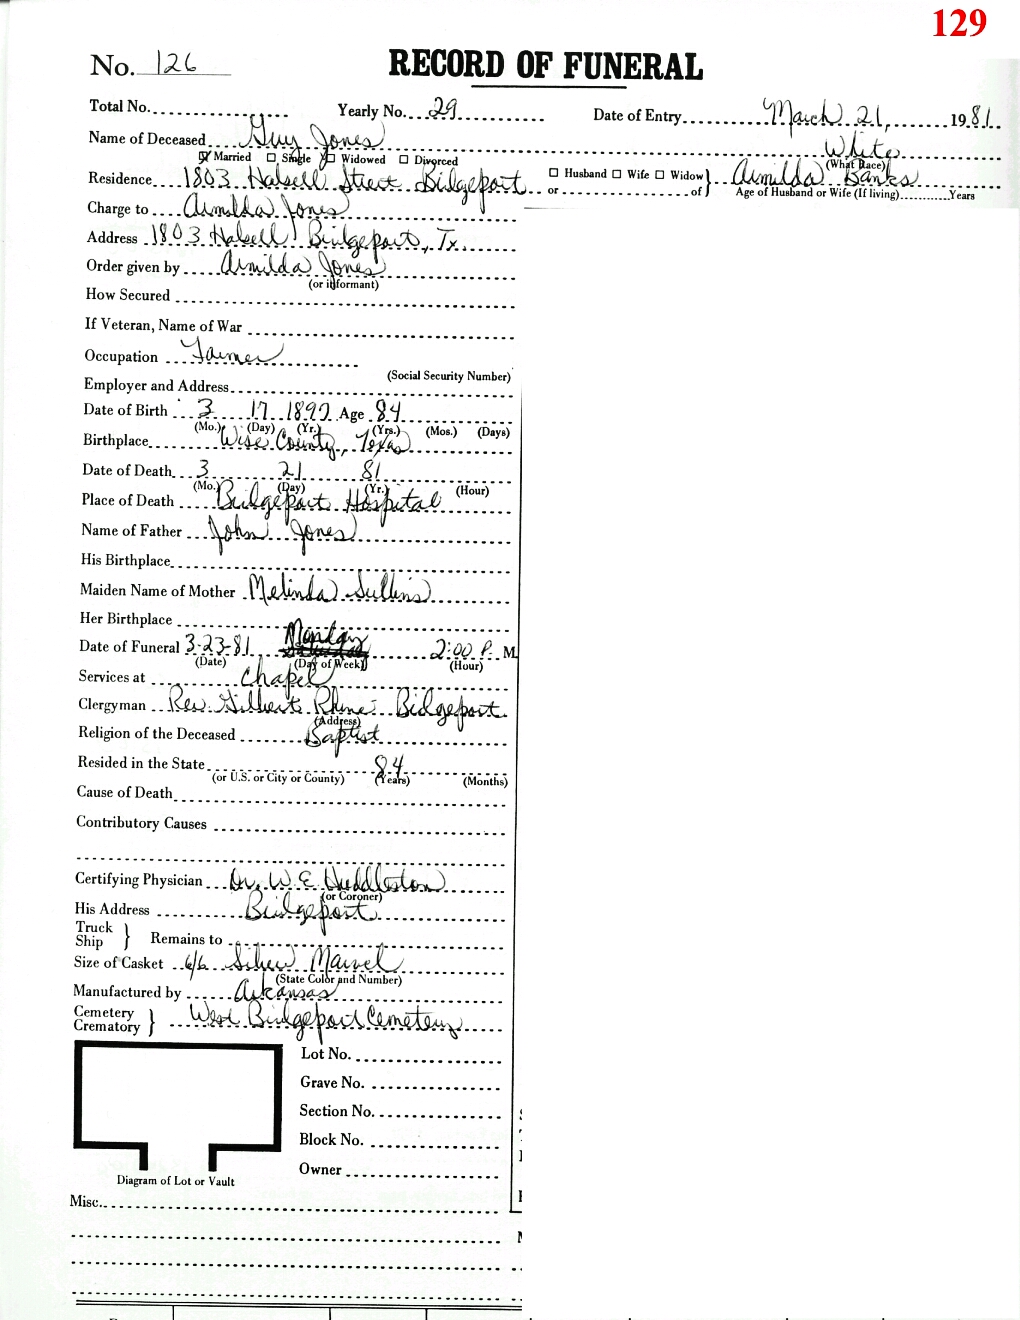 129
No. 126 RECORD OF FUNERAL
Total No. Yearly No. 29 Date of Entry March 21, 1981
Name of Deceased Guy Jones White
Married Single Widowed Divorced (What Race)
Residence 1803 Halsell Street Bridgeport Husband Wife Widow or of } Armilda Banks
Age of Husband or Wife (If living) Years
Charge to Armilda Jones
Address 1803 Halsell Bridgeport, Tx.
Order given by Armilda Jones
(or informant)
How Secured
If Veteran, Name of War
Occupation Farmer
(Social Security Number)
Employer and Address
Date of Birth 3 17 1897 Age 84
(Mo.) (Day) (Yr.) (Yrs.) (Mos.) (Days)
Birthplace Wise County, Texas
Date of Death 3 21 81
(Mo.) (Day) (Yr.) (Hour)
Place of Death Bridgeport Hospital
Name of Father John Jones
His Birthplace
Maiden Name of Mother Melinda Sullins
Her Birthplace
Date of Funeral 3-23-81 Monday 2:00 P. M.
(Date) (Day of Week) (Hour)
Services at Chapel
Clergyman Rev. Gilbert Rhine Bridgeport
(Address)
Religion of the Deceased Baptist
Resided in the State 84
(or U.S. or City or County) (Years) (Months)
Cause of Death
Contributory Causes
Certifying Physician Dr. W. E. Huddleston
(or Coroner)
His Address Bridgeport
Truck
Ship } Remains to
Size of Casket 6/6 Silver Marvel
(State Color and Number)
Manufactured by Arkansas
Cemetery
Crematory } West Bridgeport Cemetery
Lot No.
Grave No.
Section No.
Block No.
Owner
Diagram of Lot or Vault
Misc.